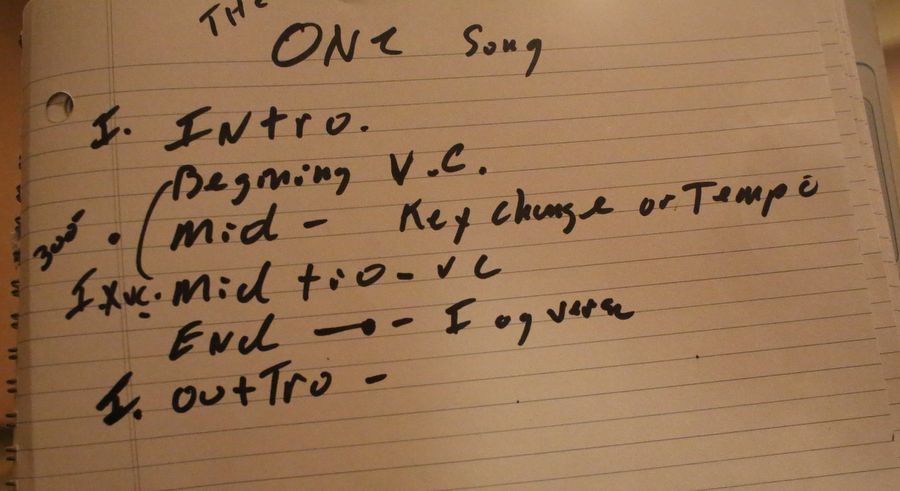 THE
ONE Song
I. INtro.
Begining V.C.
mid - Key change or Tempo
300
mid tio - VC
END - I og verse
I. outTro -